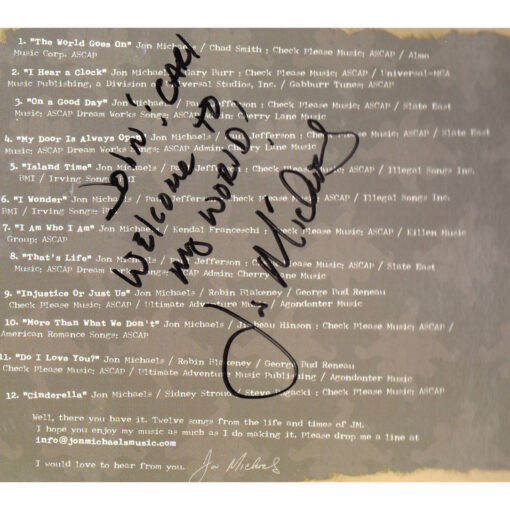 1. "The World Goes On" Jon Michaels / Chad Smith : Check Please Music; ASCAP / Almo
Music Corp. ASCAP
2. "I Hear a Clock" Jon Michaels / Gary Burr : Check Please Music; ASCAP / Universal-MCA
Music Publishing, a Division of Universal Studios, Inc. / Gabburr Tunes; ASCAP
3. "On a Good Day" Jon Michaels / Paul Jefferson : Check Please Music; ASCAP / State East
Music; ASCAP Dream Works Songs; ASCAP Admin: Cherry Lane Music
4. "My Door Is Always Open" Jon Michaels / Paul Jefferson : Check Please Music; ASCAP / State East
Music; ASCAP Dream Works Songs; ASCAP Admin: Cherry Lane Music
5. "Island Time" Jon Michaels / Paul Jefferson : Check Please Music; ASCAP / Illegal Songs Inc.
BMI / Irving Songs; BMI
6. "I Wonder" Jon Michaels / Paul Jefferson : Check Please Music; ASCAP / Illegal Songs Inc.
BMI / Irving Songs; BMI
7. "I Am Who I Am" Jon Michaels / Kendal Franceschi : Check Please Music; ASCAP / Killen Music
Group: ASCAP
8. "That's Life" Jon Michaels / Paul Jefferson : Check Please Music; ASCAP / State East
Music; ASCAP Dream Works Songs; ASCAP Admin: Cherry Lane Music
9. "Injustice Or Just Us" Jon Michaels / Robin Blakeney / George Bud Reneau
Check Please Music; ASCAP / Ultimate Adventure Music / Agondonter Music
10. "More Than What We Don't" Jon Michaels / Jimbeau Hinson : Check Please Music; ASCAP /
American Romance Songs: ASCAP
11. "Do I Love You?" Jon Michaels / Robin Blakeney / George Bud Reneau
Check Please Music; ASCAP / Ultimate Adventure Music Publishing / Agondonter Music
12. "Cinderella" Jon Michaels / Sidney / Steve : Check Please Music; ASCAP
Well, there you have it. Twelve songs from the life and times of JM.
I hope you enjoy my music as much as I do making it. Please drop me a line at
info@jonmichaelsmusic.com
I would love to hear from you. Jon Michaels
WELCOME TO
MY WORLD!
Jon Michaels